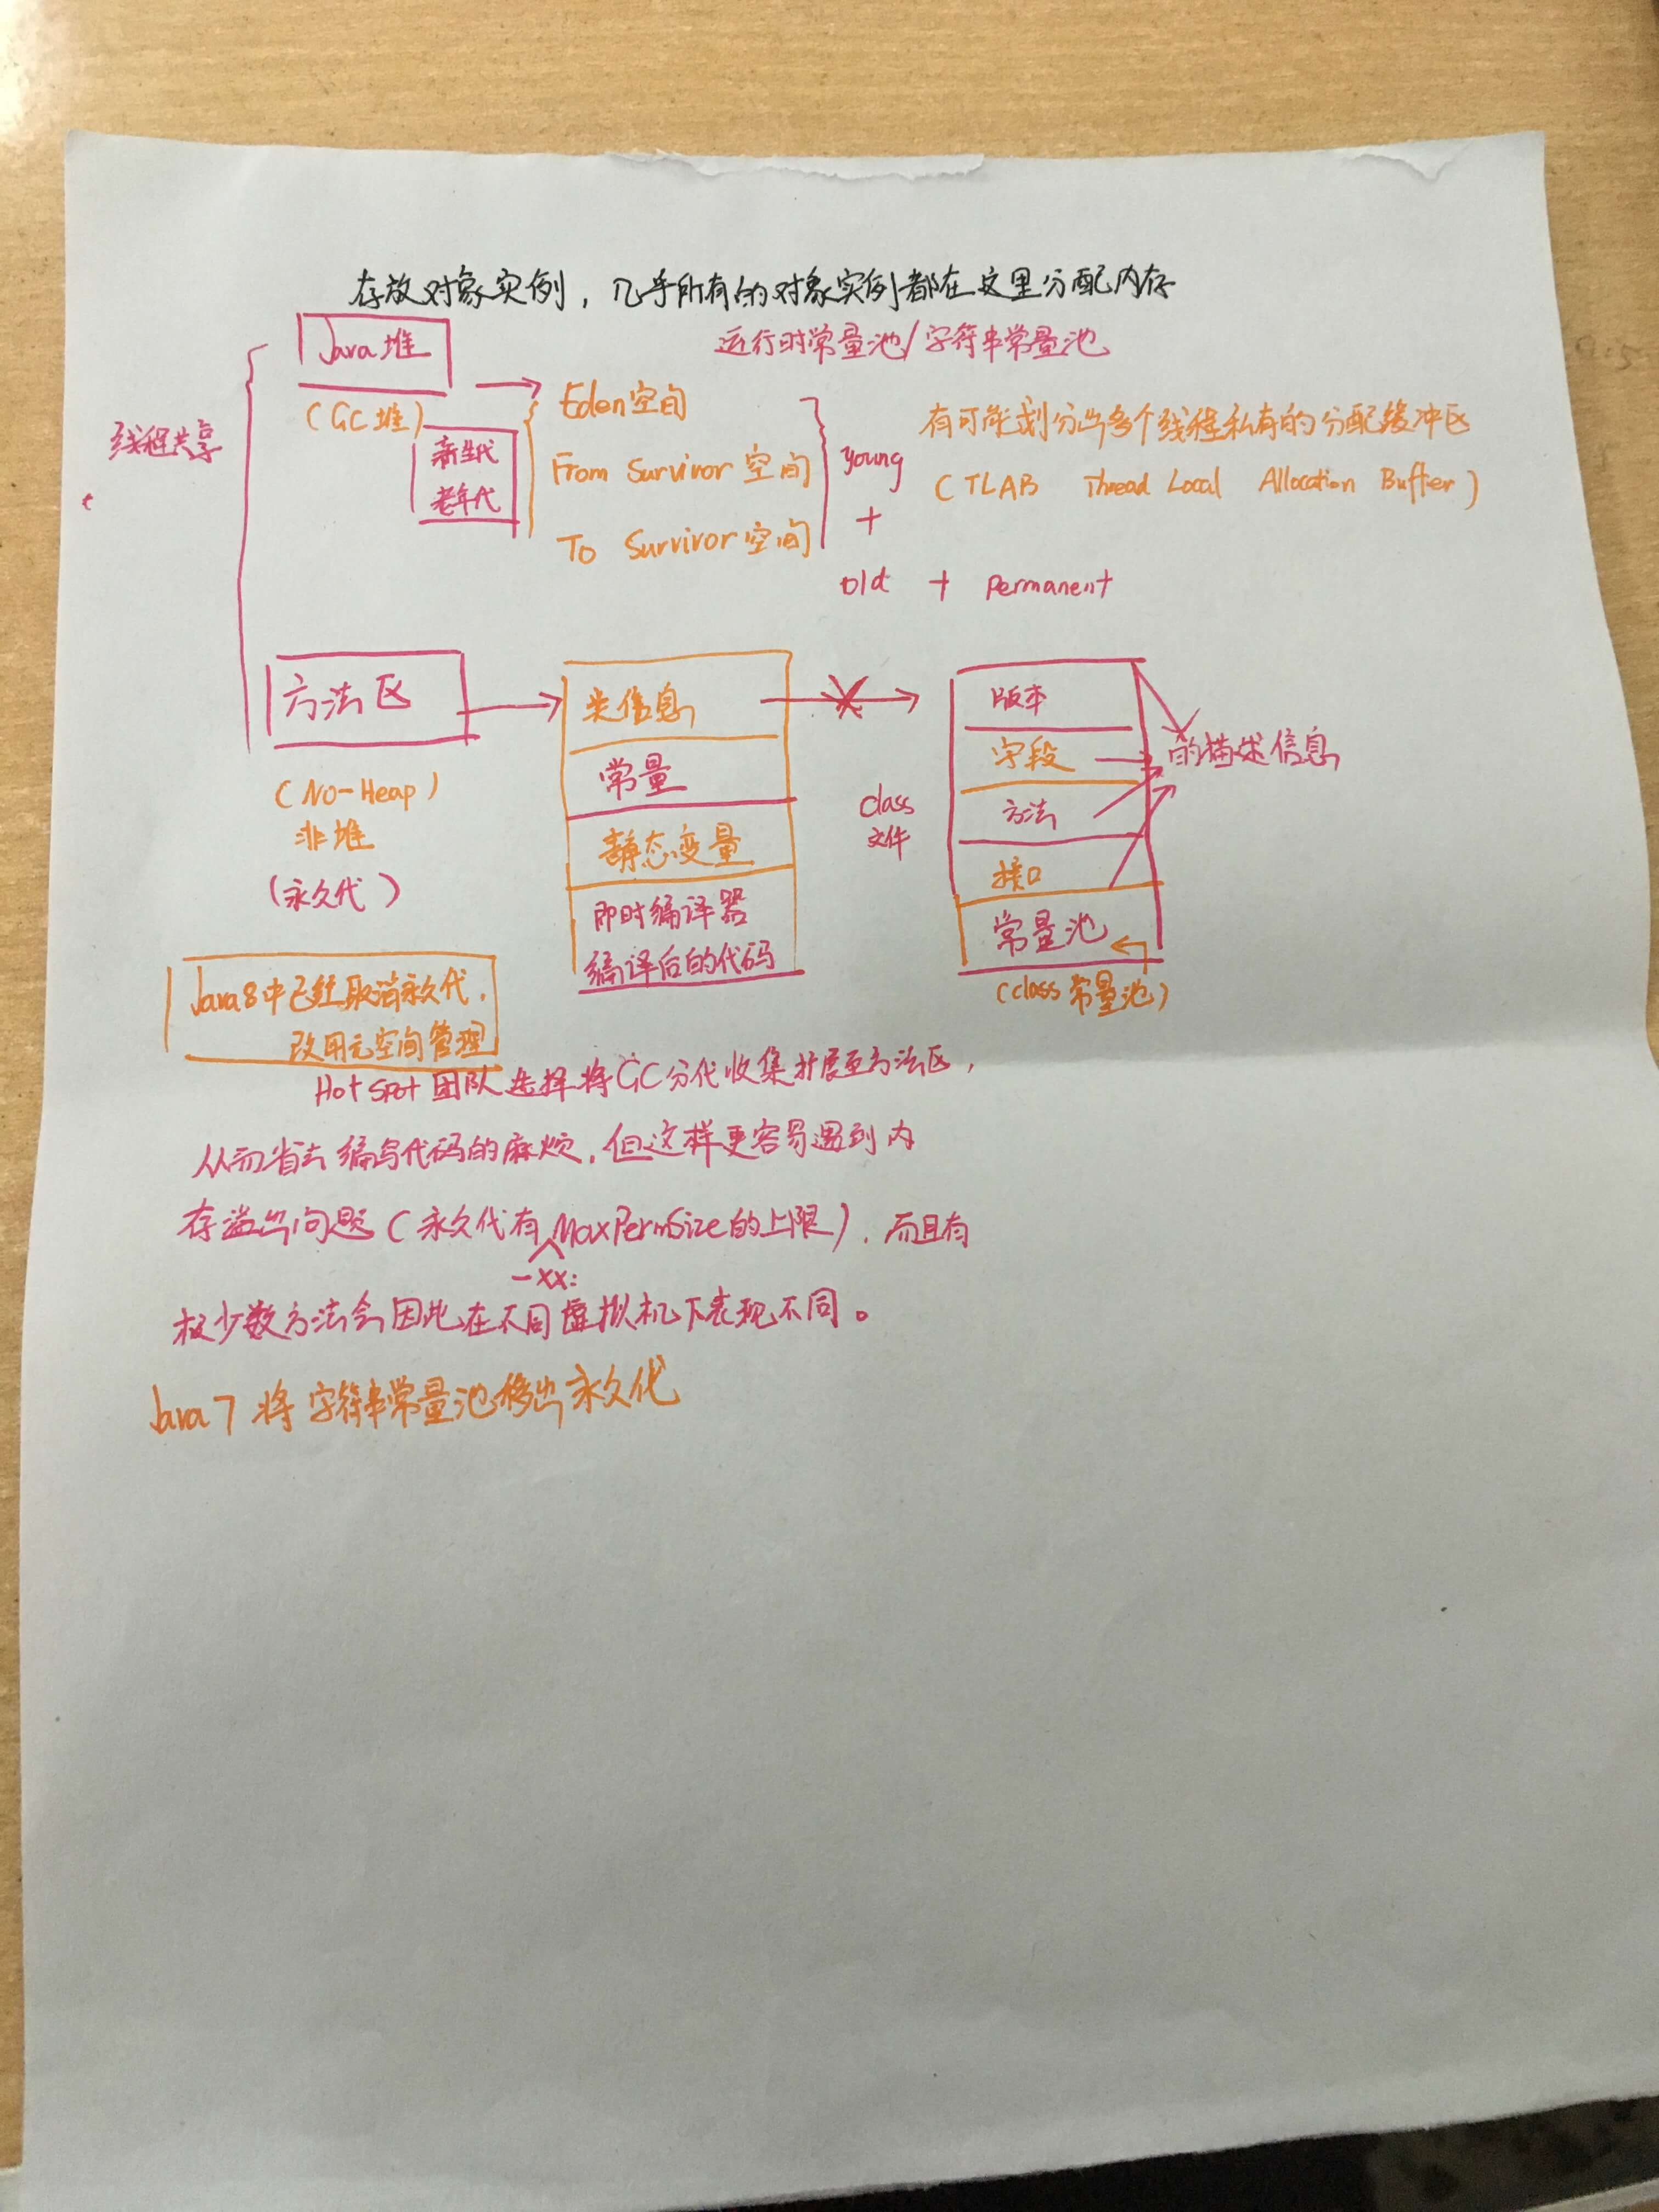 存放对象实例，几乎所有的对象实例都在这里分配内存
Java堆
运行时常量池/字符串常量池
(GC堆)
线程共享
新生代
老年代
Eden空间
From Survivor空间
To Survivor空间
young
+
old + Permanent
有可能划分出多个线程私有的分配缓冲区
(TLAB Thread Local Allocation Buffer)
方法区
(No-Heap)
非堆
(永久代)
类信息
常量
静态变量
即时编译器
编译后的代码
class
文件
版本
字段
方法
接口
常量池
(class常量池)
的描述信息
Java8中已经取消永久代，
改用元空间管理
HotSpot团队选择将GC分代收集扩展至方法区，
从而省去编写代码的麻烦，但这样更容易遇到内
存溢出问题(永久代有-XX:MaxPermSize的上限)，而且有
极少数方法会因此在不同虚拟机下表现不同。
Java7将字符串常量池移出永久代